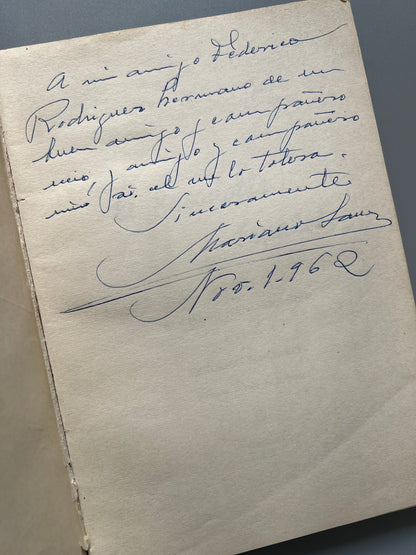 A mi amigo Federico
Rodriguez hermano de un
buen amigo y compañero
mio, y amigo y compañero
mio si el no lo tolera.
Sinceramente
Mariano Sanz
Nov. 1-1962